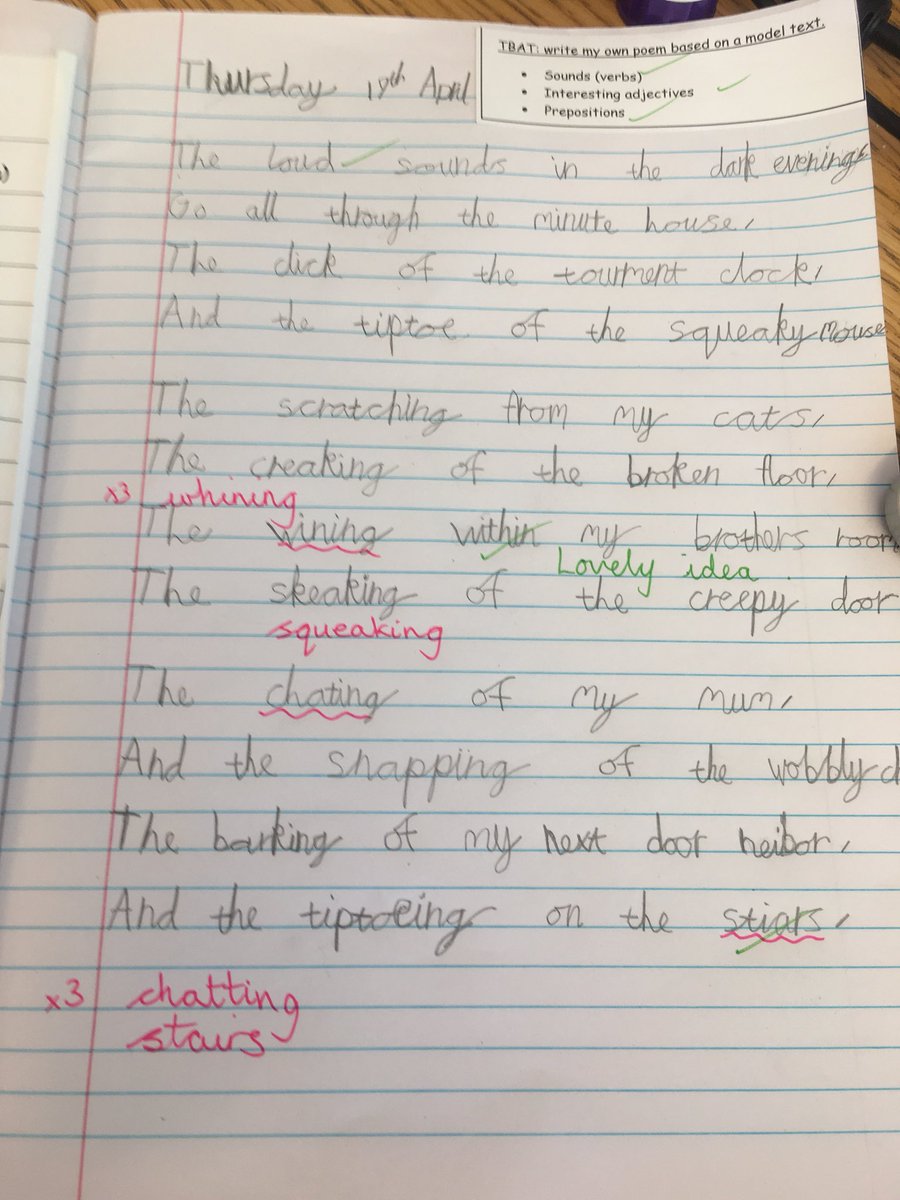 TBAT: write my own poem based on a model text.
• Sounds (verbs)
• Interesting adjectives
• Prepositions
Thursday 19th April
The loud sounds in the dark evenings
Go all through the minute house,
The click of the tourment clock,
And the tiptoe of the squeaky mouse
The scratching from my cats,
The creaking of the broken floor,
x3 whining
The wining within my brothers room
Lovely idea
The skeaking of the creepy door
squeaking
The chating of my mum,
And the snapping of the wobbly
The barking of my next door neibor,
And the tiptoeing on the stiars,
x3 chatting
stairs